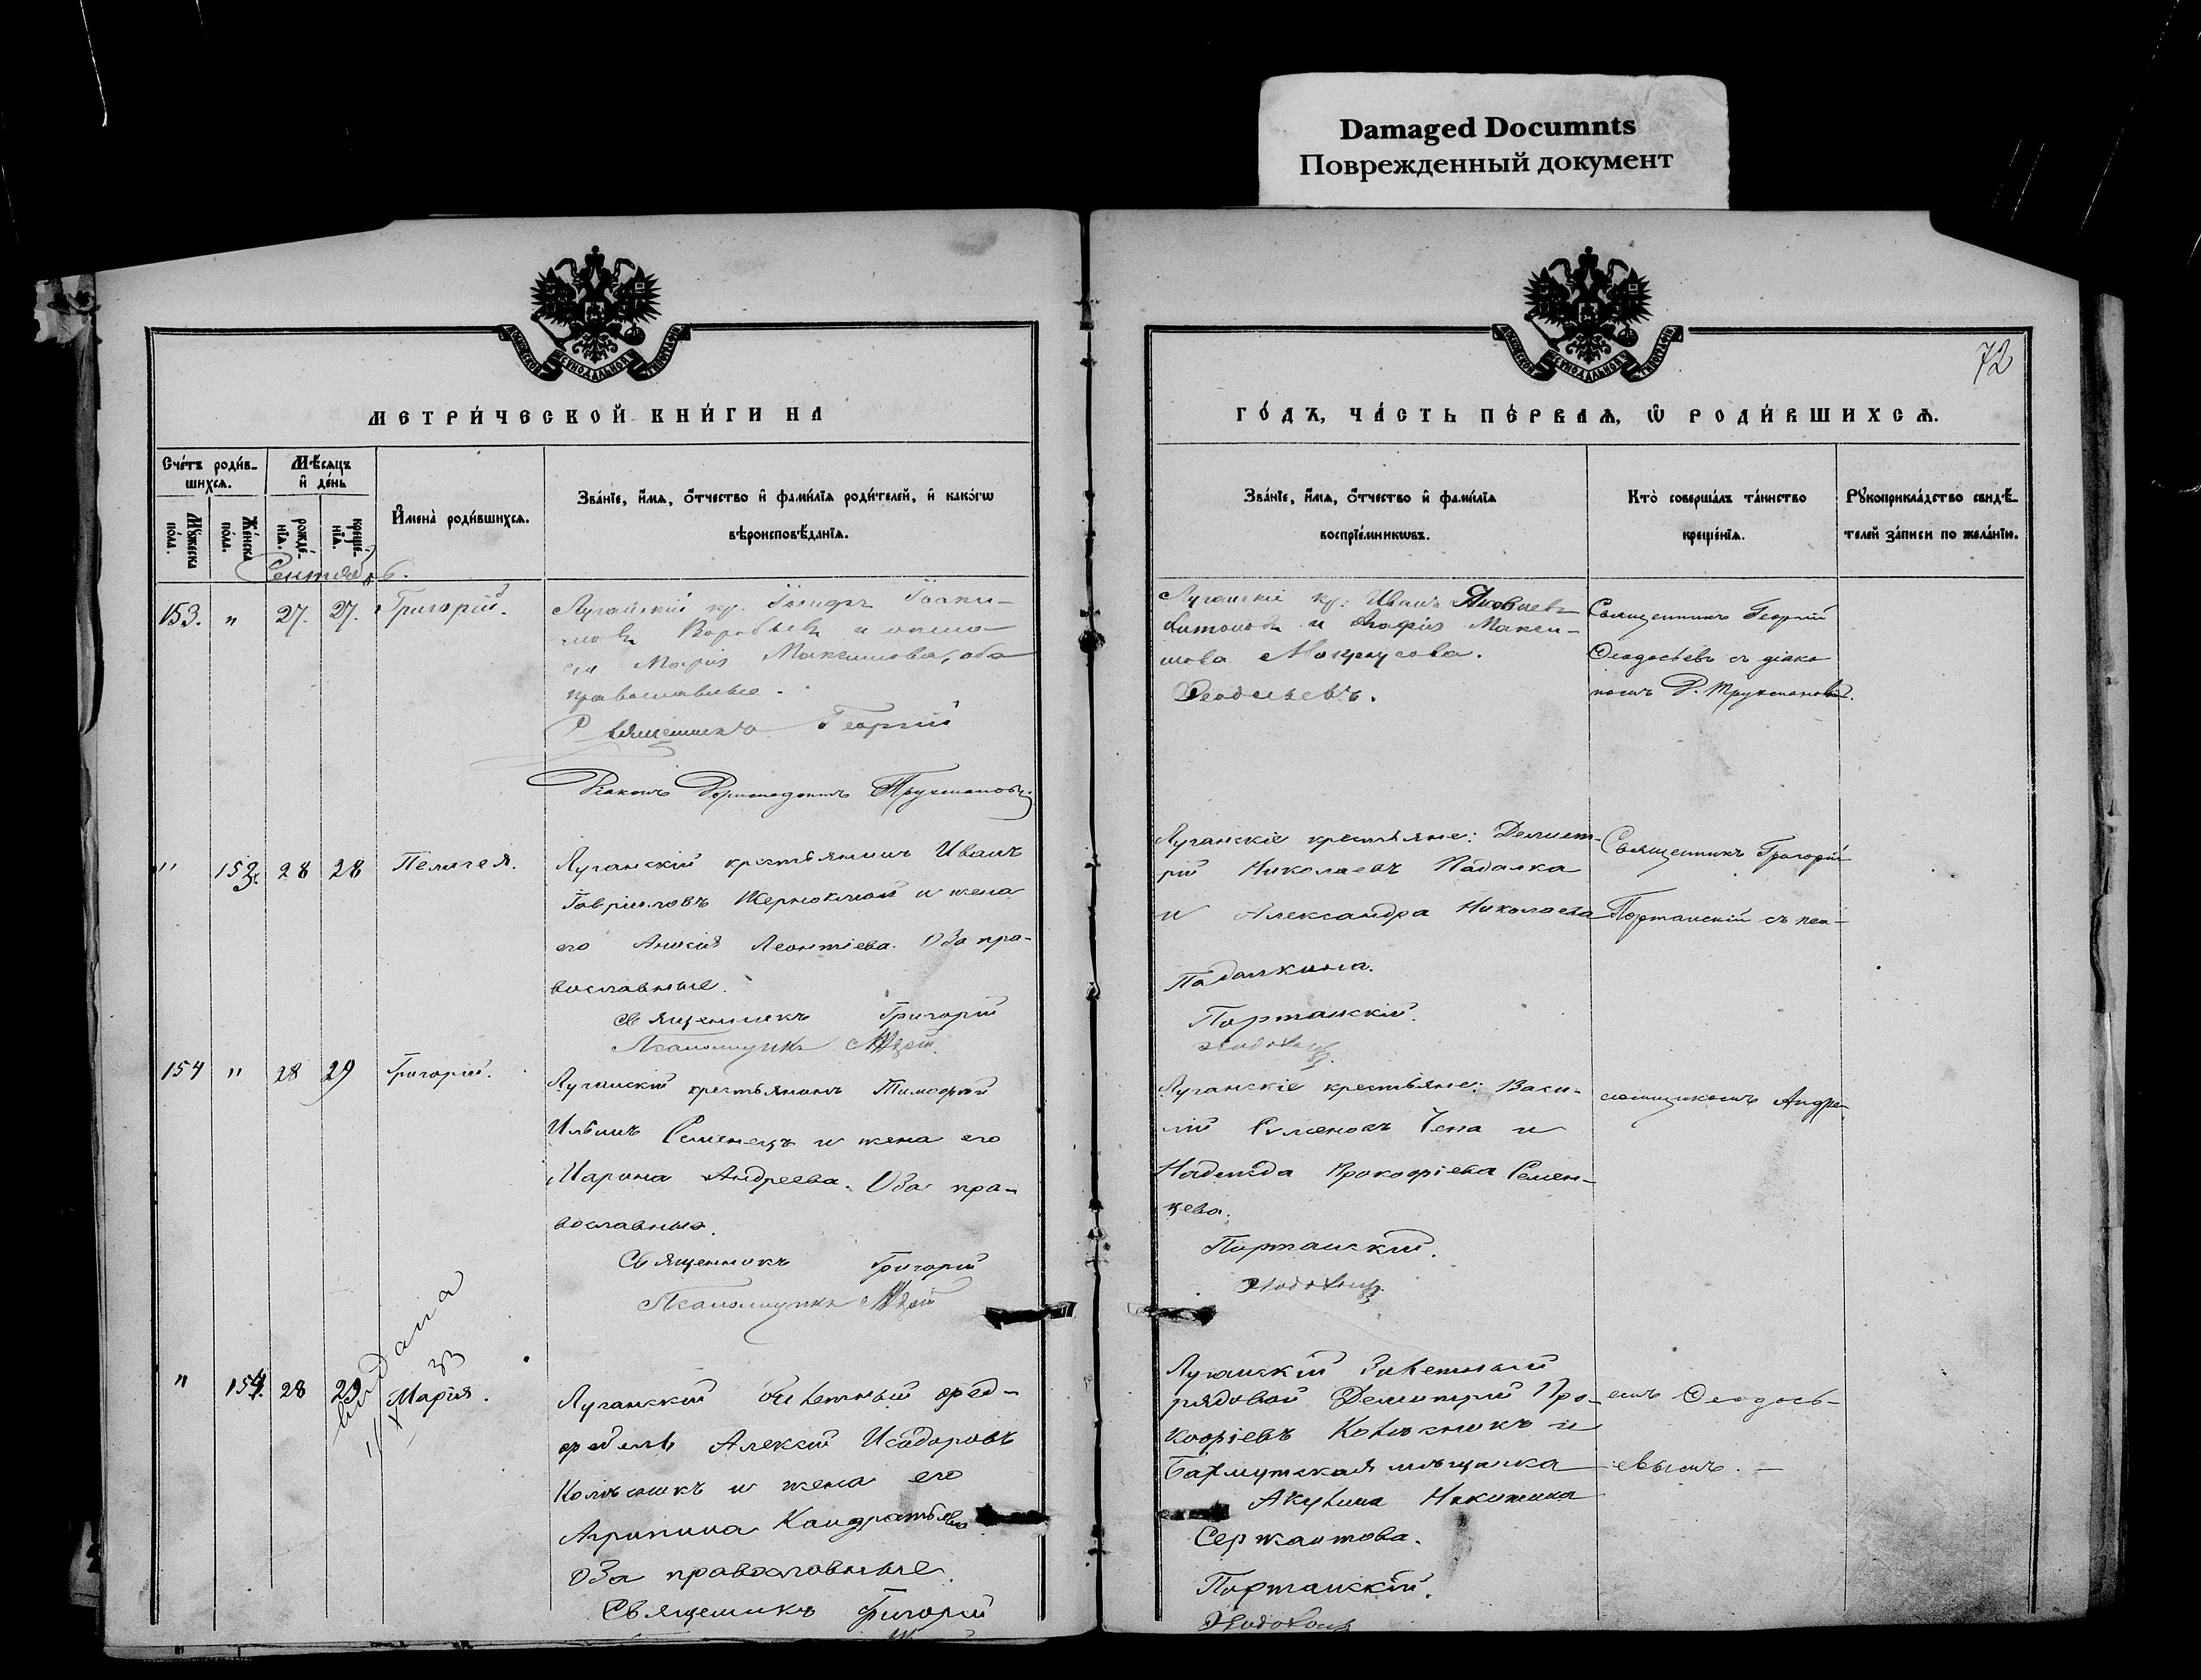 Damaged Documnts
Поврежденный документ
72
МЕТРИ́ЧЕСКОЙ КНИ́ГИ НА
ГО́ДЪ, ЧА́СТЬ ПЕ́РВАѦ, Ѡ РОДИ́ВШИХСѦ.
Сче́тъ роди́в-
шихсѧ.
Мѣ́сѧцъ
и҆ де́нь
Мꙋ́жеска
по́ла.
Же́нска
по́ла.
рожде́-
нїѧ.
креще́-
нїѧ.
И҆мена̀ роди́вшихсѧ.
Зва́нїе, и҆́мѧ, ѻ҆́тчество и҆ фами́лїѧ роди́телей, и҆ како́гѡ
вѣроисповѣ́данїѧ.
Зва́нїе, и҆́мѧ, ѻ҆́тчество и҆ фами́лїѧ
воспрїе́мникѡвъ.
Кто̀ соверша́лъ та́инство
креще́нїѧ.
Рꙋкоприкла́дство свидѣ́-
телей за́писи по жела́нїю.
153. " 27. 27. Григорій.
Луганскій кр.
Воробьевъ и жена
его Марія Максимова, оба
православные.
Священникъ Георгій
Діаконъ
Луганскіе кр: Иванъ Яковлевъ
Антоновъ и Агафія Макси-
мова
Ѳеодосьевъ.
Священникъ Георгій
Ѳеодосьевъ съ діако
номъ
" 153. 28 28 Пелагея.
Луганскій крестьянинъ Иванъ
Гавріиловъ и жена
его Анисія Леонтіева. Оба пра-
вославные.
Священникъ Григорій
Псаломщикъ
Луганскіе крестьяне: Димит-
рій Николаевъ Падалка
и Александра Николаева
Падалкина.
Портанскій.
Священникъ Григорій
Портанскій съ пса-
154 " 28 29 Григорій.
Луганскій крестьянинъ Тимофей
Ильинъ Семенецъ и жена его
Марина Андреева. Оба пра-
вославные.
Священникъ Григорій
Псаломщикъ
Луганскіе крестьяне: Васи-
лій Семеновъ Чепа и
Надежда Прокофіева Семен-
цева.
Портанскій.
ломщикомъ Андре-
" 154. 28 29 Марія.
Луганскій билетный фельд-
Алексій Исидоровъ
Колѣсникъ и жена его
Агрипина Кондратьева
Оба православные.
Священникъ Григорій
Луганскій билетный
рядовой Димитрій Про-
кофіевъ Колѣсникъ и
Бахмутская мѣщанка
Акулина Никитина
Сержантова.
Портанскій.
емъ Ѳеодось-
евымъ. -